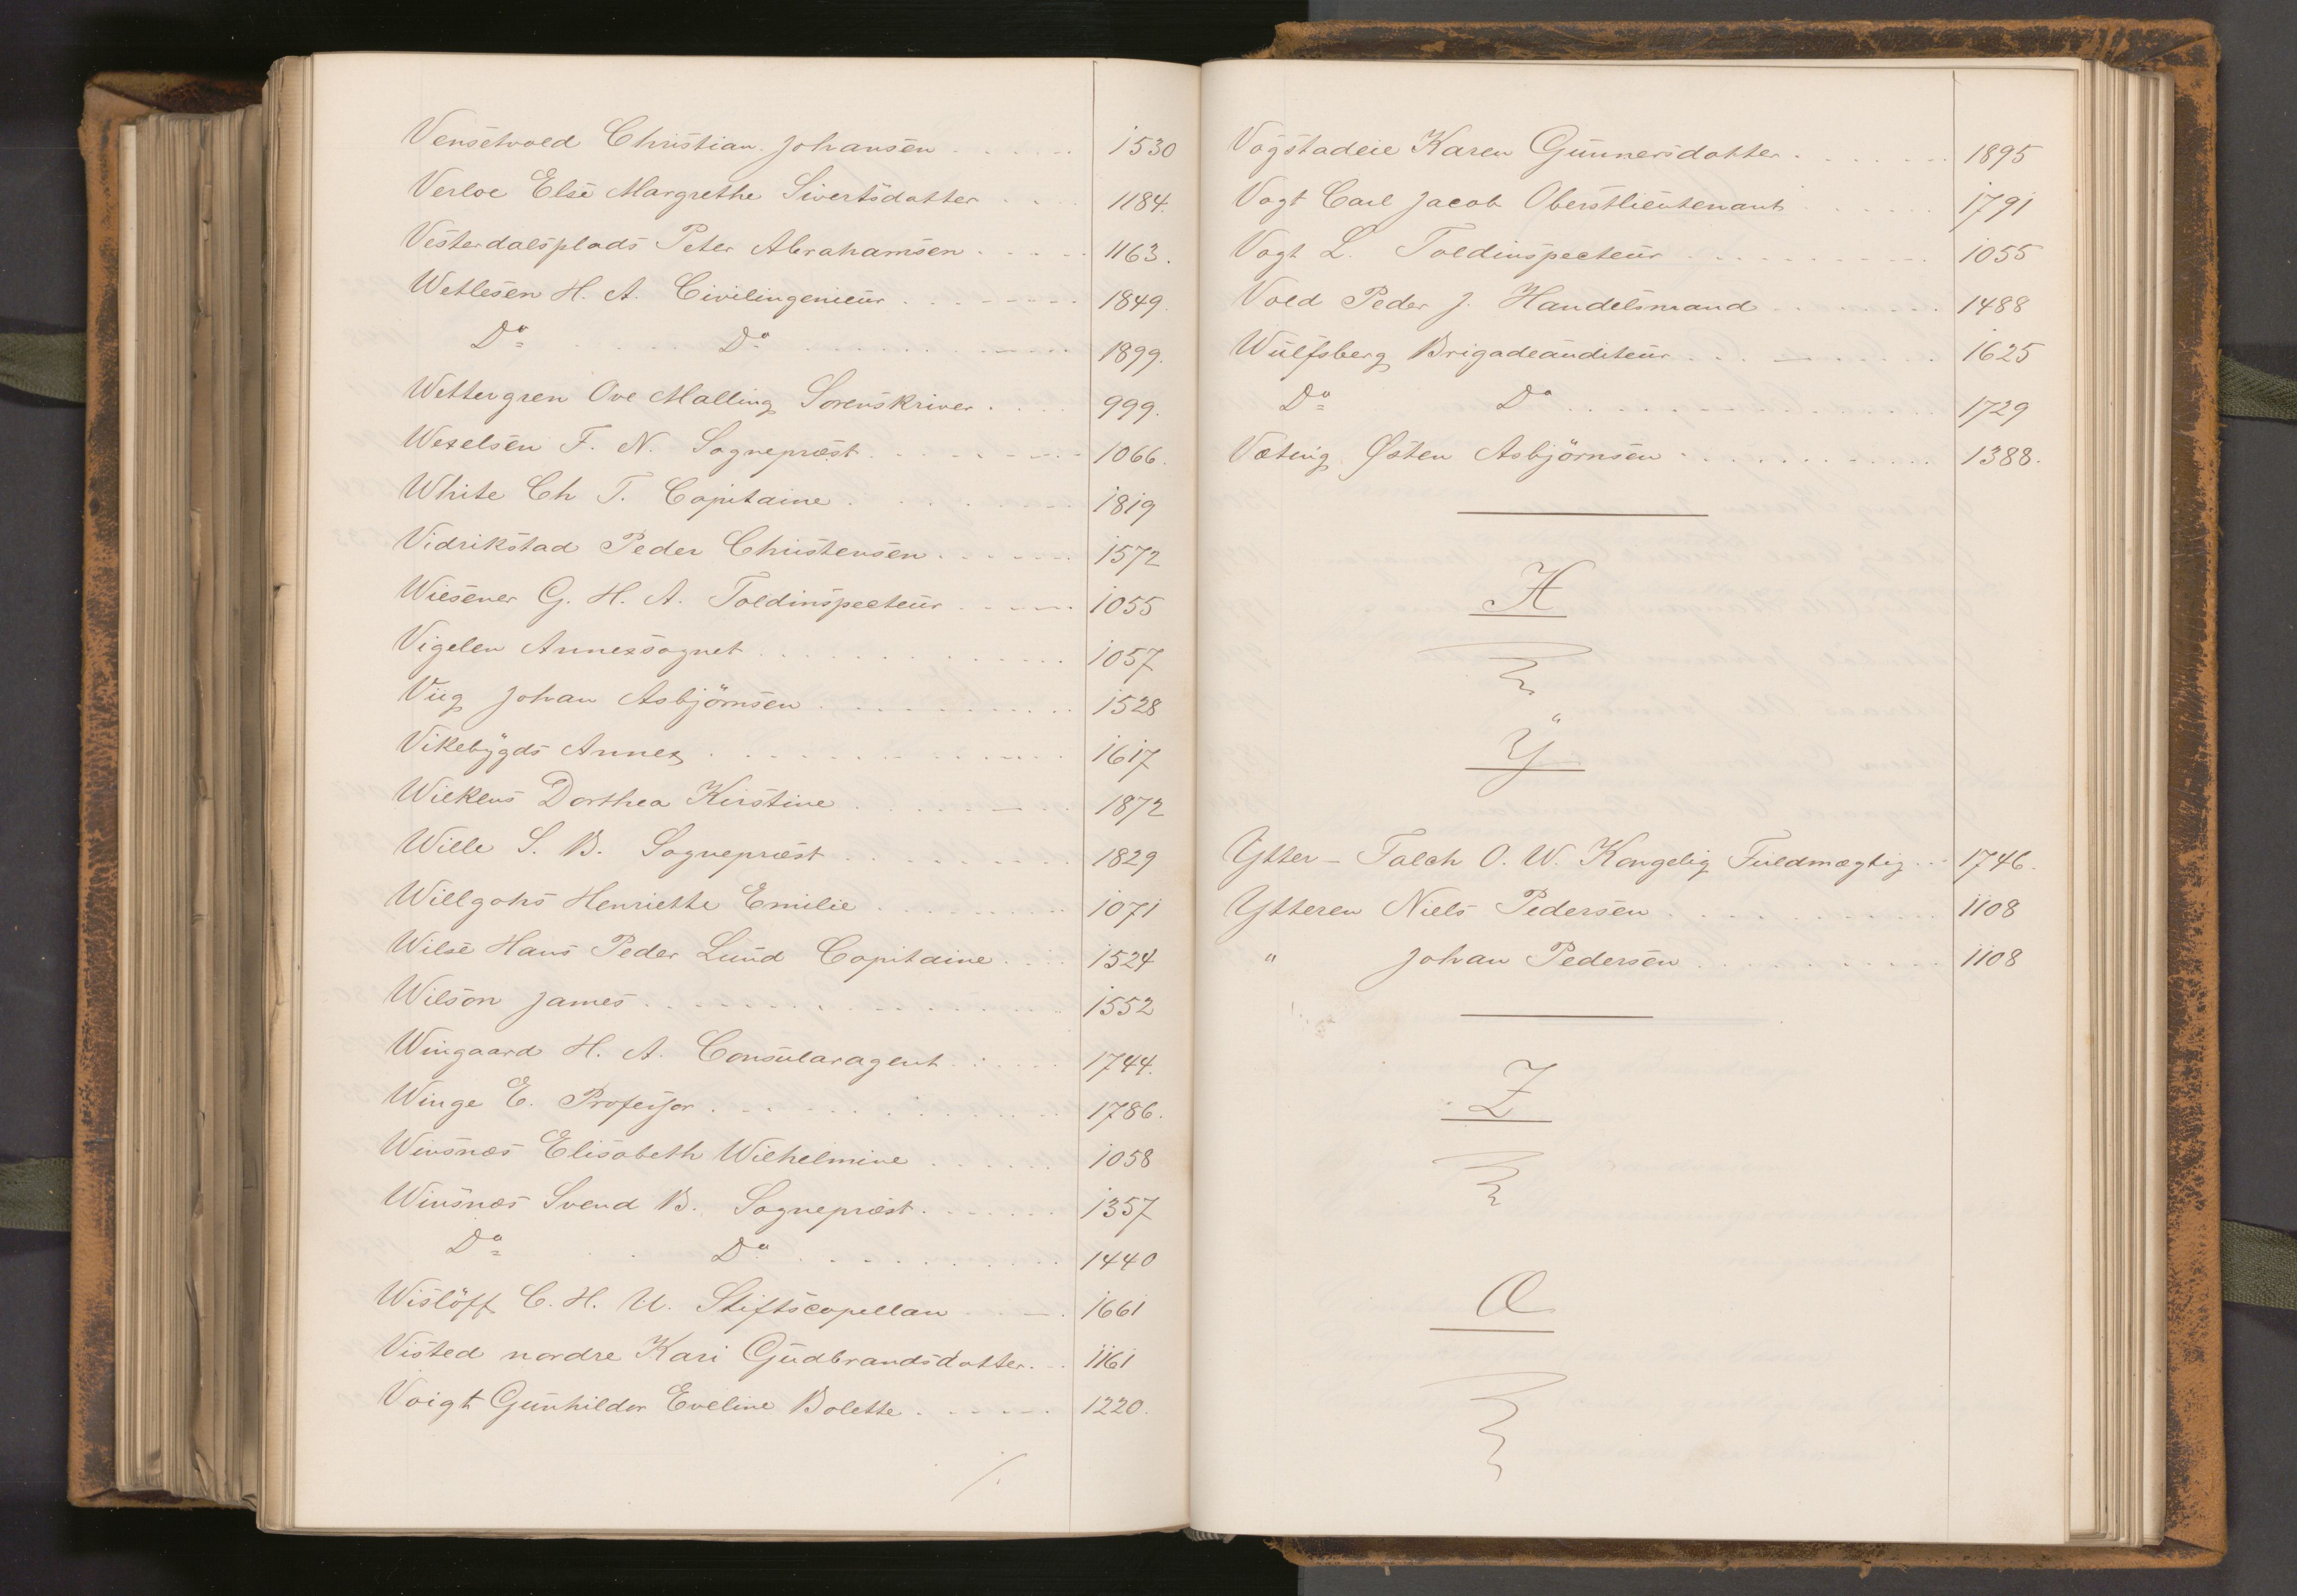 Vensetvold Christian Johansen . . . . . 1530
Verloe Else Margrethe Sivertsdatter . . . . 1184.
Vesterdalsplads Peter Abrahamsen . . . . . 1163.
Wetlesen H. A. Civilingenieur . . . . . . . 1849.
Do Do . . . . . . . . . 1899.
Wettergren Ove Malling Sorenskriver . . . . 999.
Wexelsen F. N. Sognepræst . . . . . . . . 1066.
White Ch T. Capitaine . . . . . . . . 1819
Vidrikstad Peder Christensen . . . . . . 1572
Wiesener G. H. A. Toldinspecteur . . . . . 1055
Vigelen Annexsognet . . . . . . . . . . . 1057
Viig Johan Asbjörnsen . . . . . . . . . . 1528
Vikebygds Annex . . . . . . . . . . . . 1617
Wilkens Dorthea Kirstine . . . . . . . . 1872
Wille S. B. Sognepræst . . . . . . . . . 1829
Willgohs Henriette Emilie . . . . . . . . . 1071
Wilse Hans Peder Lund Capitaine . . . . 1524
Wilson James . . . . . . . . . . . . . . 1552
Wingaard H. A. Consularagent . . . . . . 1744.
Winge E. Professor . . . . . . . . . . . . 1786.
Winsnæs Elisabeth Wilhelmine . . . . . . 1058
Winsnæs Svend B. Sognepræst . . . . . . . 1357
Do Do . . . . . . . . . . . 1440
Wislöff C. H. U. Stiftscapellan . . . . 1661
Visted nordre Kari Gudbrandsdatter . . . 1161
Voigt Gunhilda Eveline Bolette . . . . . . 1220.
/.
Vogstadeie Karen Gunnersdatter . . . . . . . 1895
Vogt Carl Jacob Oberstlieutenant . . . . . . 1791
Vogt L. Toldinspecteur . . . . . . . . . . . 1055
Vold Peder J. Handelsmand . . . . . . . . 1488
Wulfsberg Brigadeauditeur . . . . . . . . 1625
Do Do . . . . . . . . . . . . . . . 1729
Væting Østen Asbjörnsen . . . . . . . . . . 1388.
X
Y
Ytter - Falch O. W. Kongelig Fuldmægtig . . 1746.
Ytteren Niels Pedersen . . . . . . . . . . . 1108
" Johan Pedersen . . . . . . . . . . 1108
Z
Æ